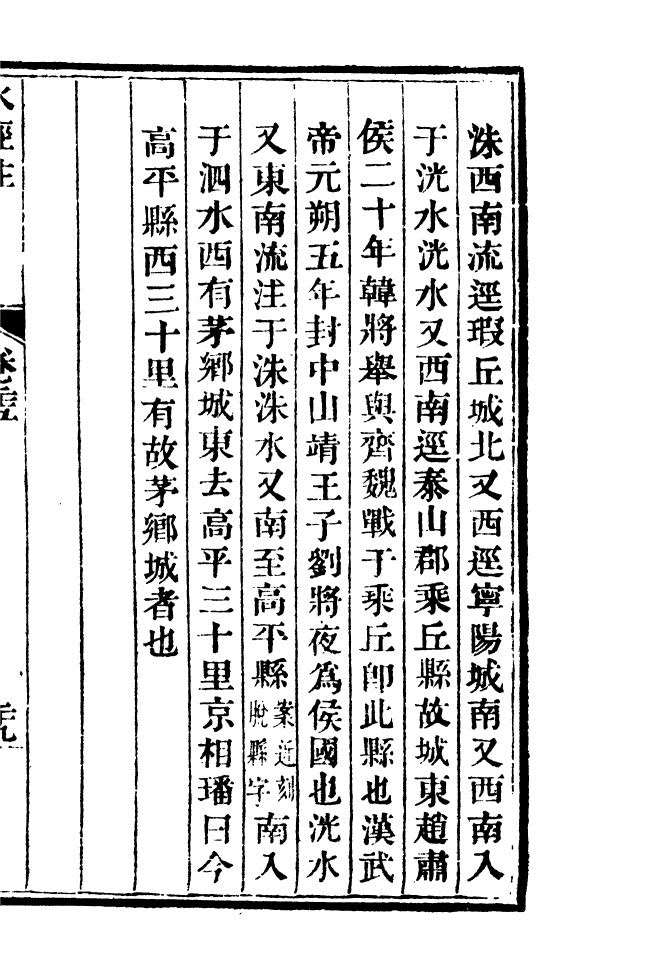 洙西南流逕瑕丘城北又西逕寧陽城南又西南入
于洸水洸水又西南逕泰山郡乘丘縣故城東趙肅
侯二十年韓將舉與齊魏戰于乘丘卽此縣也漢武
帝元朔五年封中山靖王子劉將夜爲侯國也洸水
又東南流注于洙洙水又南至高平縣案近刻脫縣字南入
于泗水西有茅鄉城東去高平三十里京相璠曰今
高平縣西三十里有故茅鄉城者也
水經注
卷二十五